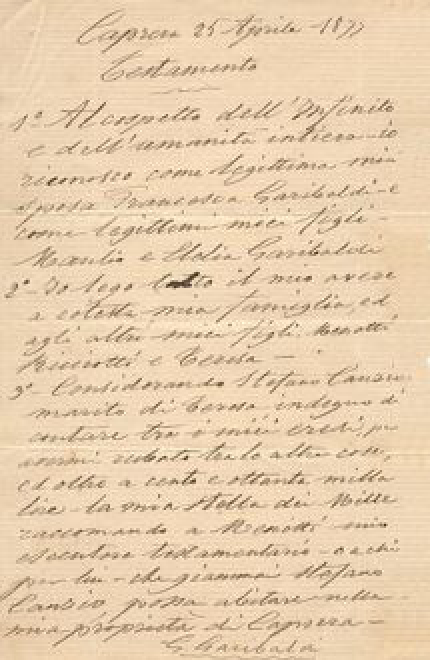 Caprera 25 Aprile 1877
Testamento
1º Al cospetto dell'Infinito
e dell'umanità intiera io
riconosco come legittima mia
sposa Francesca Garibaldi e
come legittimi miei figli
Manlio e Clelia Garibaldi
2º Io lego tutto il mio avere
a cotesta mia famiglia, ed
agli altri miei figli Menotti
Ricciotti e Teresa —
3º Considerando Stefano Canzio
marito di Teresa indegno di
contare tra i miei eredi, per
rubato tra le altre cose,
ed oltre a cento e ottanta milla
lire la mia stella dei Mille
raccomando a Menotti mio
esecutore testamentario o a chi
per lui che giammai Stefano
Canzio possa abitare nella
mia proprietà di Caprera —
G. Garibaldi